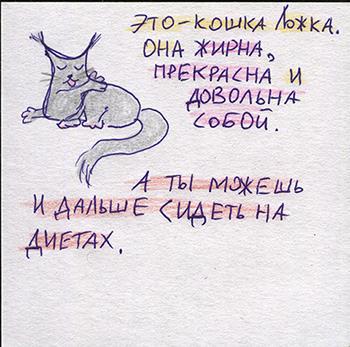 ЭТО-КОШКА ЛОЖКА.
ОНА ЖИРНА,
ПРЕКРАСНА И
ДОВОЛЬНА
СОБОЙ.
А ТЫ МОЖЕШЬ
И ДАЛЬШЕ СИДЕТЬ НА
ДИЕТАХ.